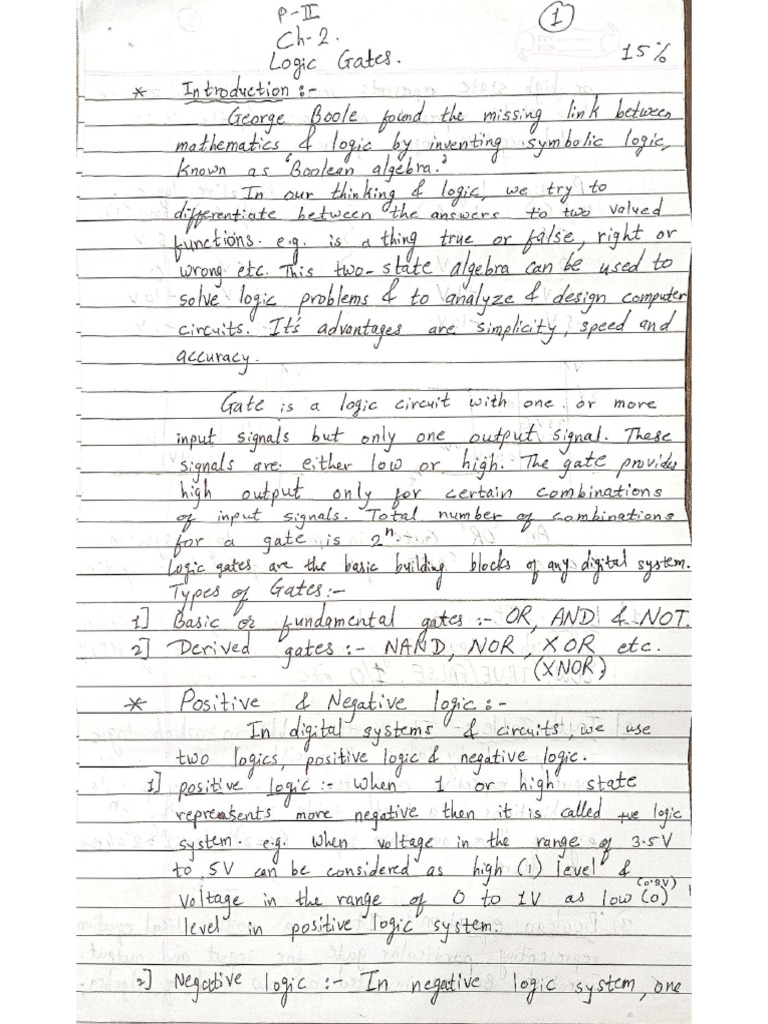 P-II
1
Ch-2.
Logic Gates.
15%
* Introduction :-
George Boole found the missing link between
mathematics & logic by inventing symbolic logic,
known as 'Boolean algebra.'
In our thinking & logic, we try to
differentiate between the answers to two valued
functions. e.g. is a thing true or false, right or
wrong etc. This two-state algebra can be used to
solve logic problems & to analyze & design computer
circuits. It's advantages are simplicity, speed and
accuracy.
Gate is a logic circuit with one or more
input signals but only one output signal. These
signals are either low or high. The gate provides
high output only for certain combinations
of input signals. Total number of combinations
for a gate is 2ⁿ.
Logic gates are the basic building blocks of any digital system.
Types of Gates :-
1] Basic or fundamental gates :- OR, AND & NOT.
2] Derived gates :- NAND, NOR, XOR etc.
(XNOR)
* Positive & Negative logic :-
In digital systems & circuits, we use
two logics, positive logic & negative logic.
1] positive logic :- When 1 or high state
represents more negative then it is called +ve logic
system. e.g. when voltage in the range of 3.5V
to 5V can be considered as high (1) level &
(0.9V)
voltage in the range of 0 to 1V as low (0)
level in positive logic system.
2] Negative logic :- In negative logic system, one